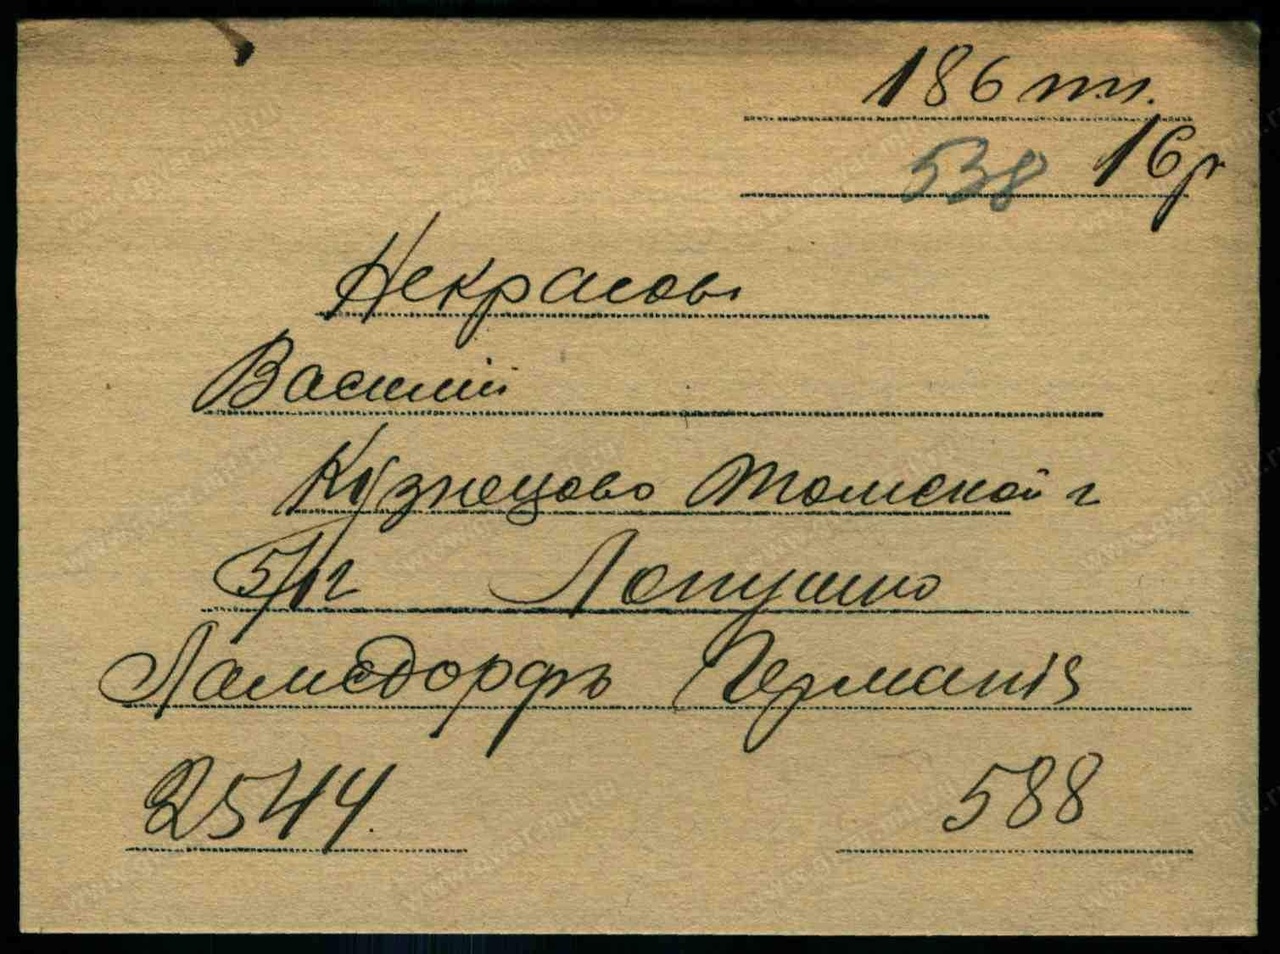 186 пп.
538 16 р
Некрасовъ
Василий
Кузнецово Томской г
5/VI г Лопушно
Ламсдорфъ Германія
2544. 588